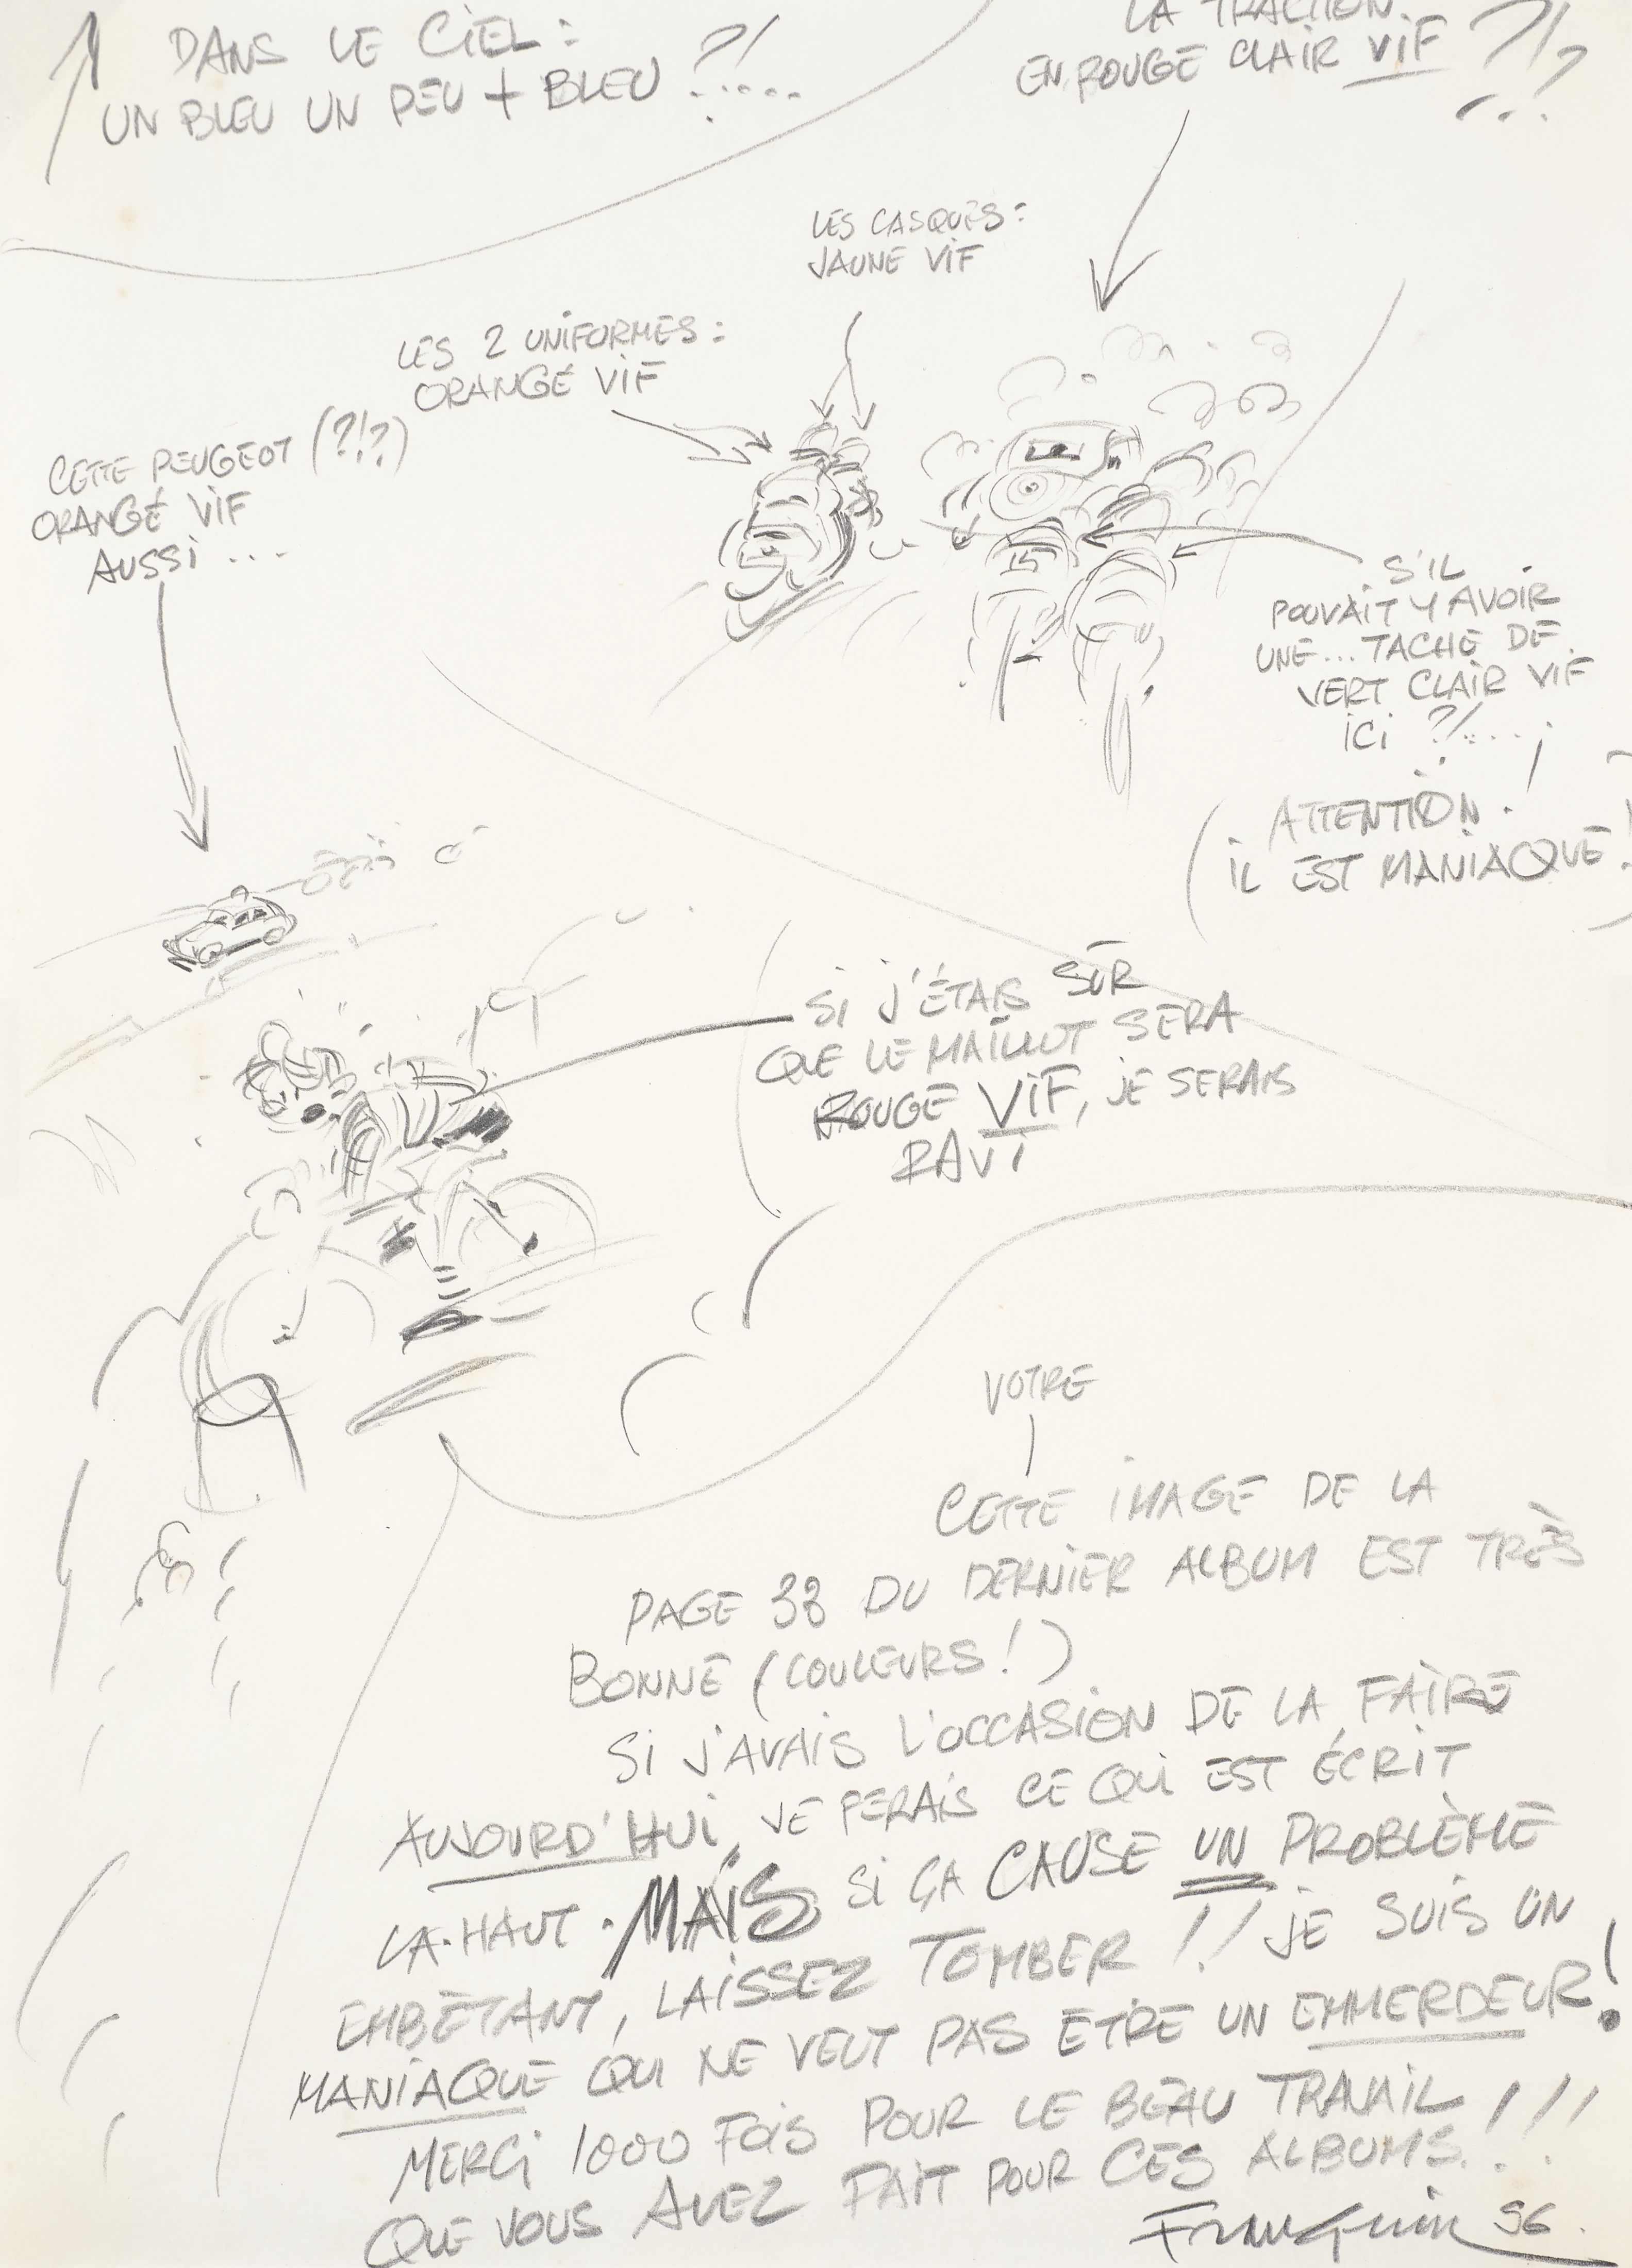 DANS LE CIEL :
UN BLEU UN PEU + BLEU ?!.....
LA TRACTION
EN ROUGE CLAIR VIF ?!?
LES CASQUES :
JAUNE VIF
LES 2 UNIFORMES :
ORANGÉ VIF
CETTE PEUGEOT (?!?)
ORANGÉ VIF
AUSSI ...
S'IL
POUVAIT Y AVOIR
UNE ... TACHE DE
VERT CLAIR VIF
ICI ?!....
(ATTENTION !
IL EST MANIAQUE !)
SI J'ÉTAIS SÛR
QUE LE MAILLOT SERA
ROUGE VIF, JE SERAIS
RAVI
VOTRE
CETTE IMAGE DE LA
PAGE 38 DU DERNIER ALBUM EST TRÈS
BONNE (COULEURS !)
SI J'AVAIS L'OCCASION DE LA FAIRE
AUJOURD'HUI, JE FERAIS CE QUI EST ÉCRIT
LÀ-HAUT. MAIS SI ÇA CAUSE UN PROBLÈME
LAISSEZ TOMBER !! JE SUIS UN
EMBÊTANT,
MANIAQUE QUI NE VEUT PAS ETRE UN EMMERDEUR !
MERCI 1000 FOIS POUR LE BEAU TRAVAIL
QUE VOUS AVEZ FAIT POUR CES ALBUMS !!!
Franquin 96.